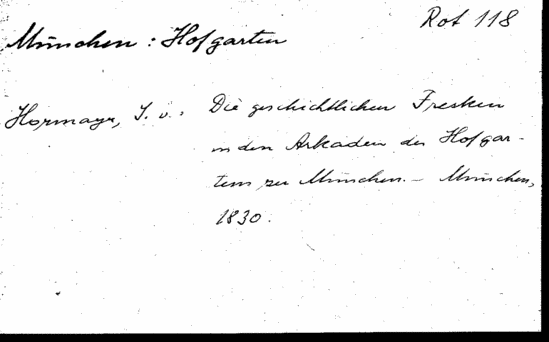 Rot 118
München: Hofgarten
Hormayr, J. v.: Die geschichtlichen Fresken
in den Arkaden des Hofgar-
tens zu München. - München,
1830.